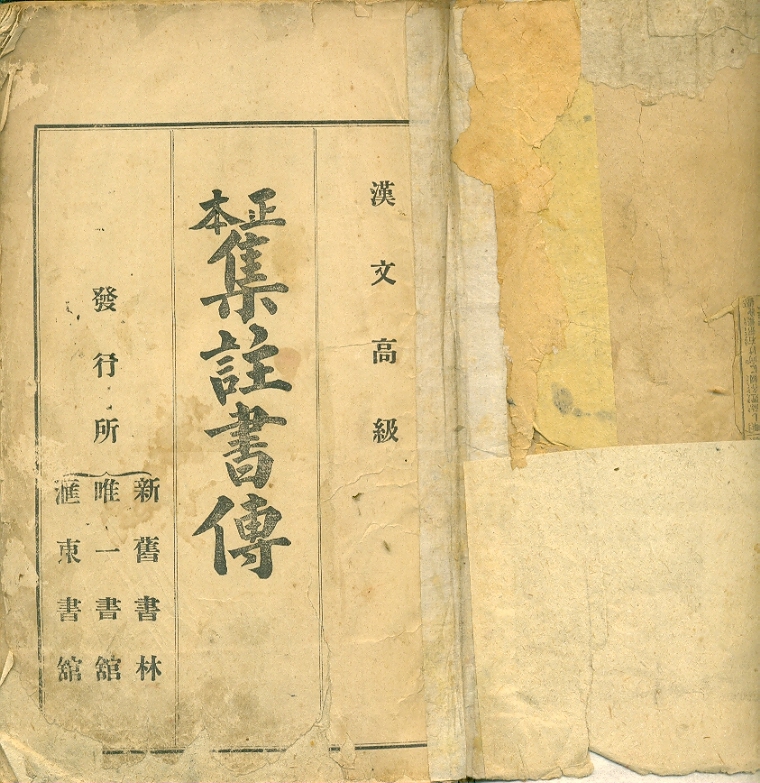 漢文高級
正本
集註書傳
發行所
新舊書林
唯一書舘
滙東書舘